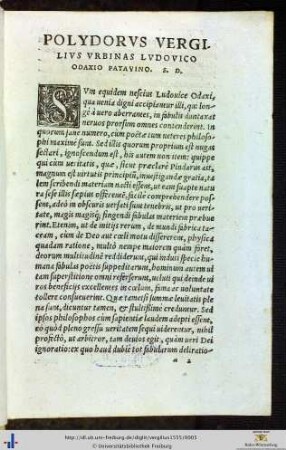 POLYDORVS VERGI-
LIVS VRBINAS LVDOVICO
ODAXIO PATAVINO. S. D.
SVm equidem nescius Ludouice Odaxi,
qua uenia digni accipiantur illi, qui lon-
gè à uero aberrantes, in fabulis duntaxat
neruos prorsum omnes contenderent. In
quorum sane numero, cum poëtæ tum ueteres philoso-
phi maxime sunt. Sed illis quorum proprium est nugas
sectari, ignoscendum est, his autem non item: quippe
qui cum ueritatis, quæ, sicut præclarè Pindarus ait,
magnum est uirtutis principium, inuestigandæ gratia,
tam scribendi materiam nacti essent, ut eam suapte natu
ra sese illis sæpius offerente, facilè comprehendere pos-
sent, adeò in obscuris uersati sunt tenebris, ut pro ueri-
tate, magis magisque fingendi fabulas materiem præbue
rint. Etenim, ut de initijs rerum, de mundi fabrica ta-
ceam, cùm de Deo aut cœli motu dissererent, physica
quadam ratione, multò nempe maiorem quàm fi
deorum multitudinē reddiderunt, qui induti specie hu-
mana fabulas poëtis suppeditarunt, hominum autem ui
tam superstitione omni refersserunt, ueluti qui deinde ui
ros beneficijs excellentes in cœlum, fama ac uoluntate
tollere consueuerint. Quæ tametsi summæ leuitatis ple
na sunt, dicuntur tamen, & stultissimè creduntur. Sed
ipsos philosophos cum sapientiæ laudem adepti essent,
eò quòd pleno gressu ueritatem sequi uiderentur, nihil
profectò, ut arbitror, tam deuios egit, quàm ueri Dei
ignoratio: ex quo haud dubiè tot fabularum deliratio-
a 2
http://dl.ub.uni-freiburg.de/diglit/vergilius1535/0003
© Universitätsbibliothek Freiburg